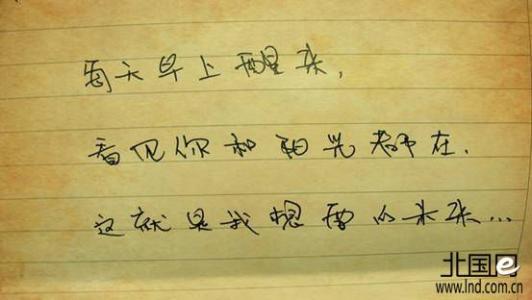 每天早上醒来,
看见你和阳光都在.
这就是我想要的未来...
北国网
www.lnd.com.cn